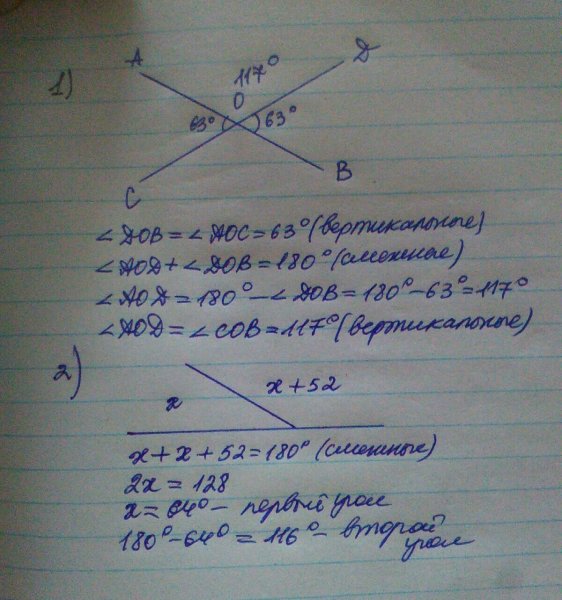 1)
A
117°
D
O
63°
63°
C
B
∠DOB = ∠AOC = 63° (вертикальные)
∠AOD + ∠DOB = 180° (смежные)
∠AOD = 180° - ∠DOB = 180° - 63° = 117°
∠AOD = ∠COB = 117° (вертикальные)
2)
x
x + 52
x + x + 52 = 180° (смежные)
2x = 128
x = 64° - первый угол
180° - 64° = 116° - второй
угол